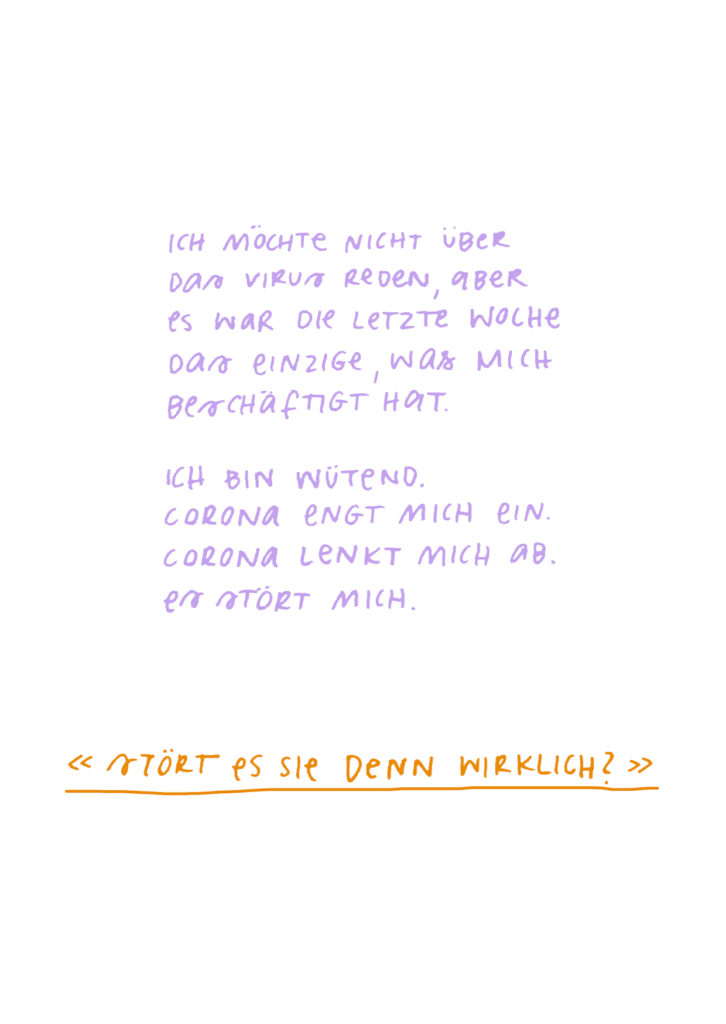 ICH MÖCHTE NICHT ÜBER
DAS VIRUS REDEN, ABER
ES WAR DIE LETZTE WOCHE
DAS EINZIGE, WAS MICH
BESCHÄFTIGT HAT.
ICH BIN WÜTEND.
CORONA ENGT MICH EIN.
CORONA LENKT MICH AB.
ES STÖRT MICH.
« STÖRT ES SIE DENN WIRKLICH? »